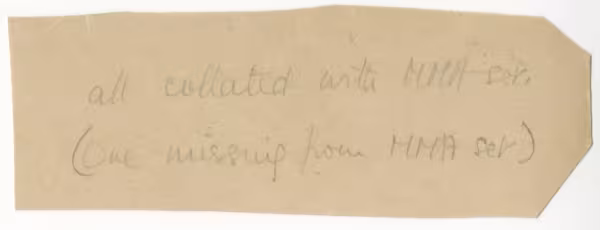 all collated with MMA set.
(One missing from MMA set)